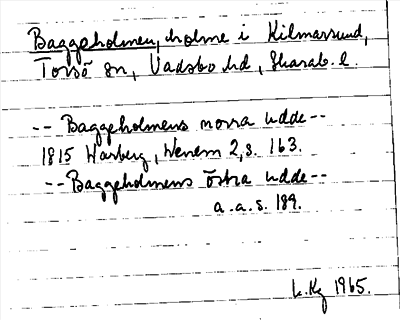 Baggeholmen, holme i Kilmarsund,
Torsö sn, Vadsbo hd, Skarab. l.
-- Baggeholmens norra udde --
1815 Warberg, Wenern 2, s. 163.
-- Baggeholmens östra udde --
a.a.s. 189.
L. Kg 1965.